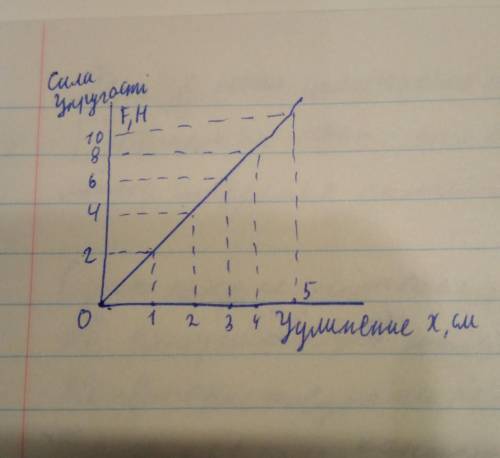 Сила
Упругості
F,H
10
8
6
4
2
0 1 2 3 4 5
Удлинение x, см